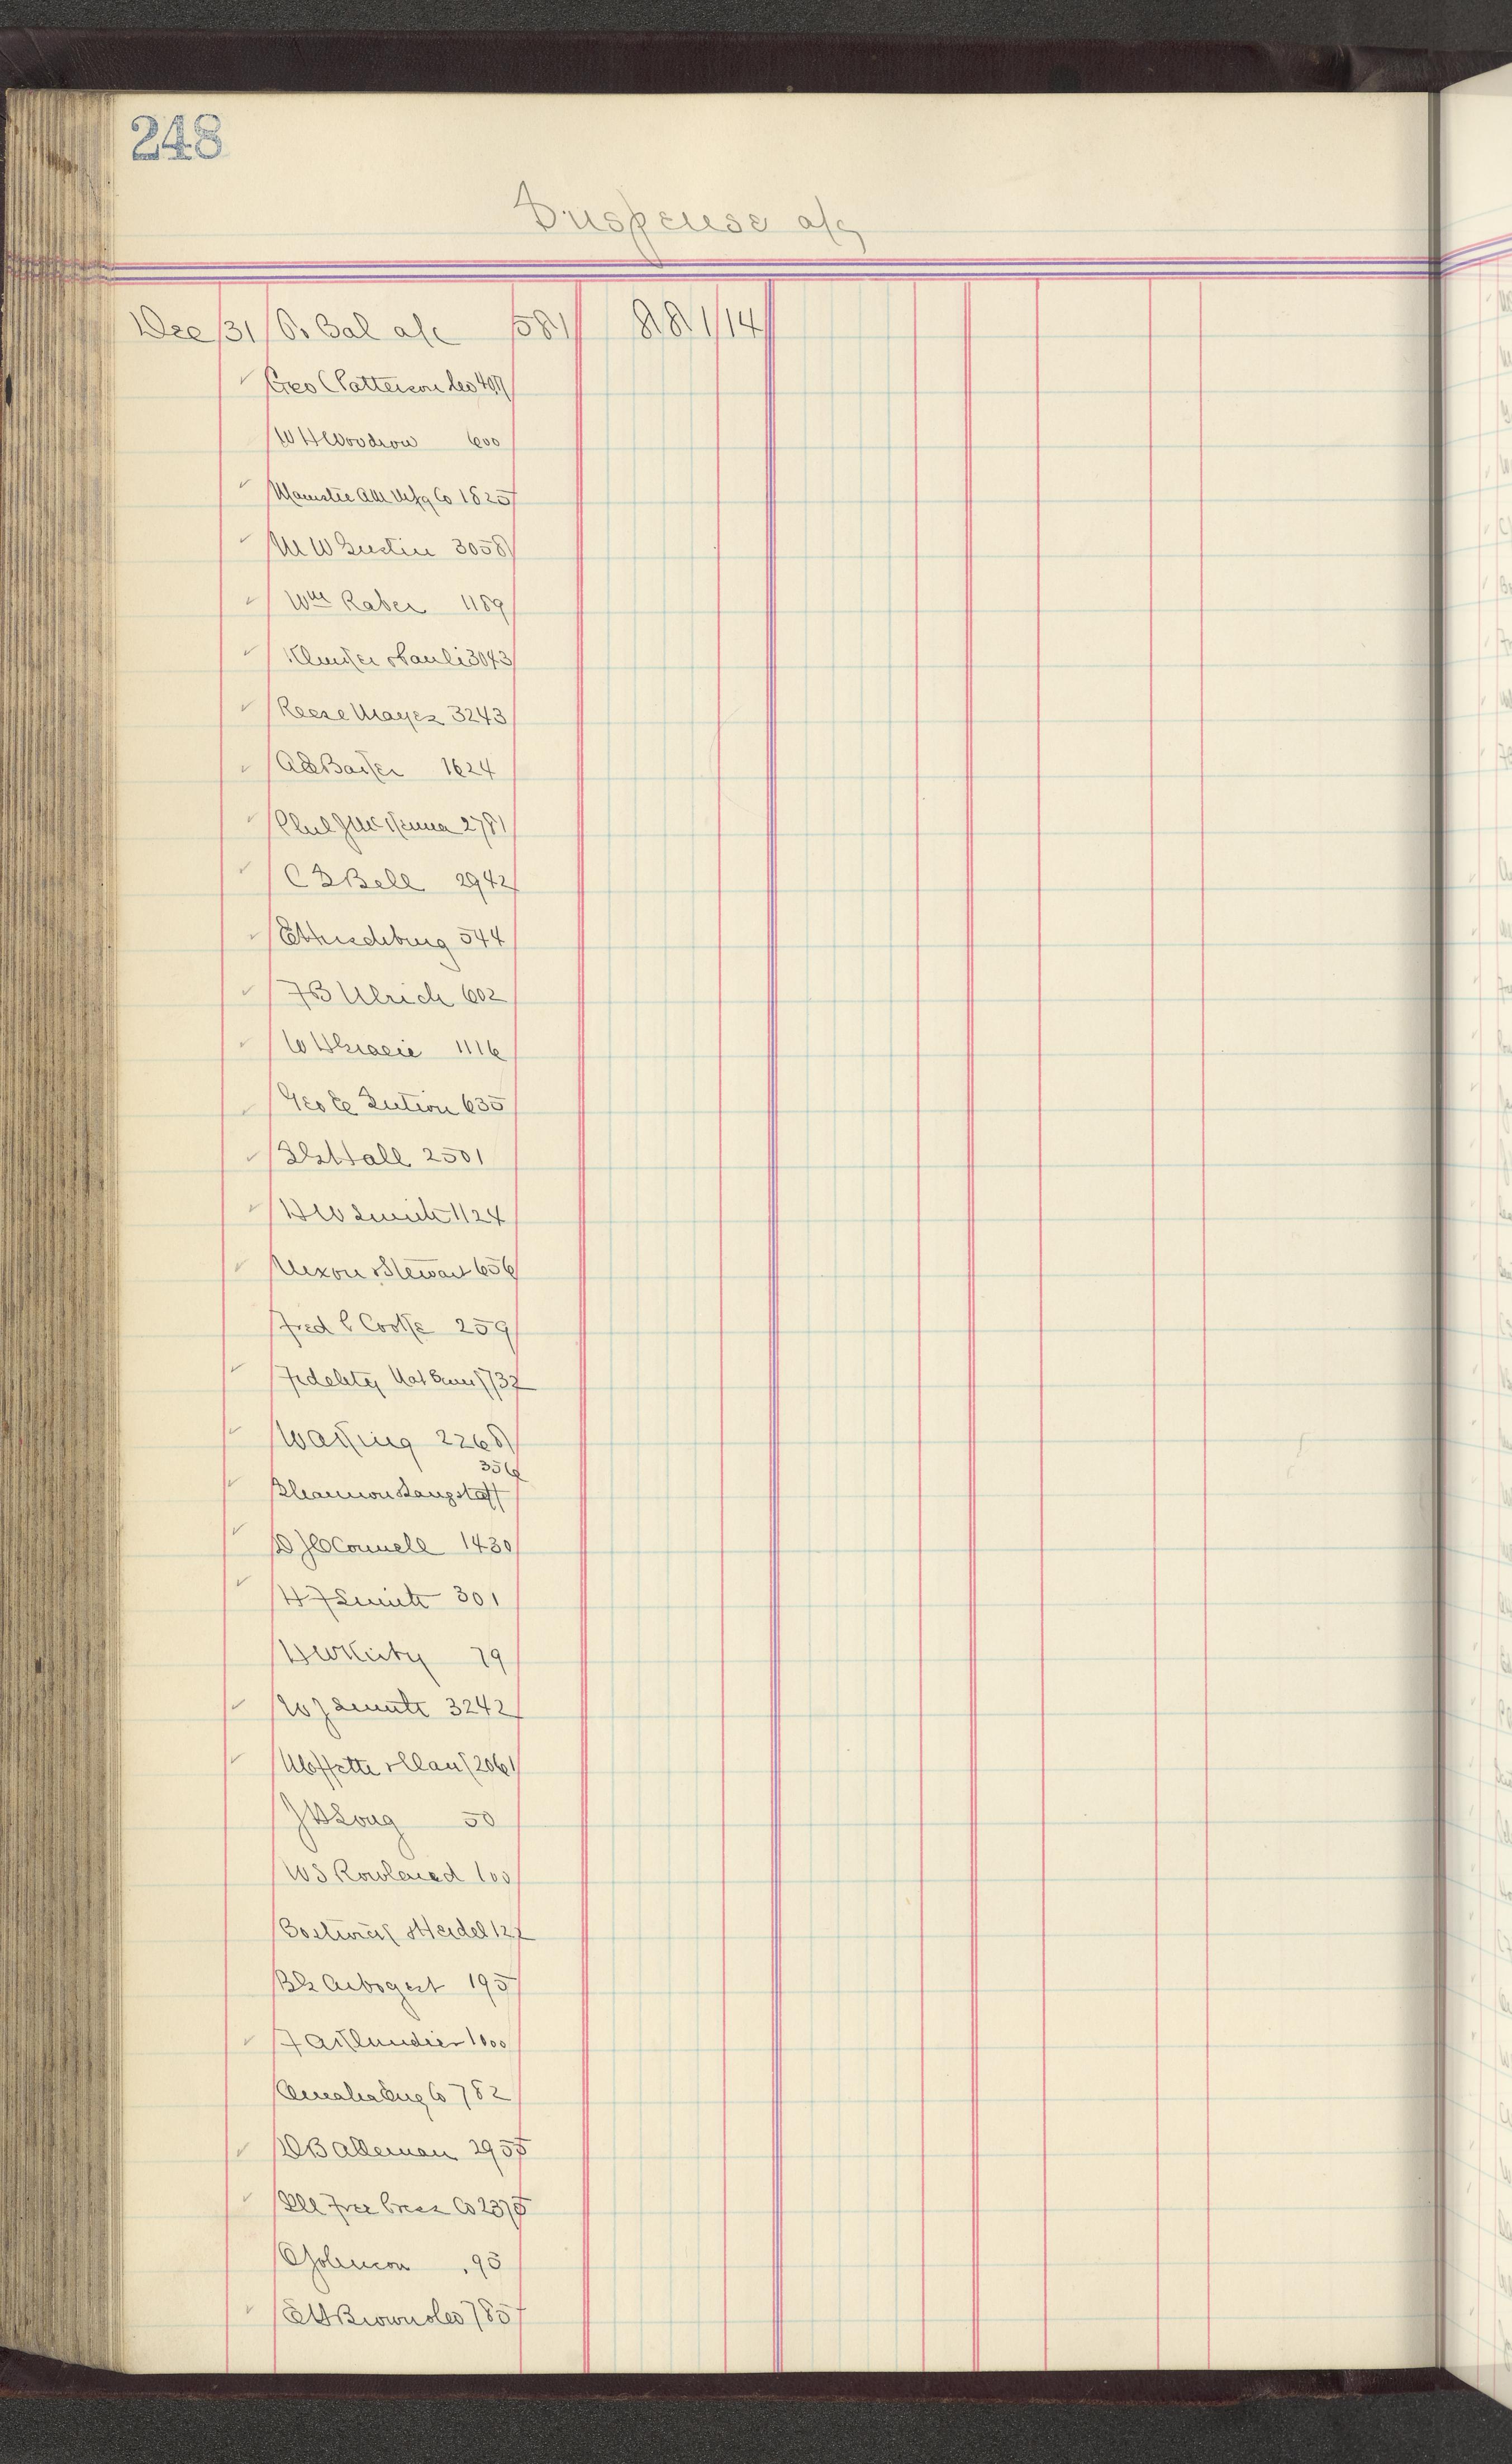 248
Suspense a/c
Dec 31 Pr Bal a/c 581 881 14
Geo C Patterson les 407
W H Woodrow 600
Manistee Mfg Co 1825
M W Gustin 3058
Wm Raber 1189
Pauli 3043
Reese Mayes 3243
A E Baker 1624
Phil J McKenna 2781
C B Bell 2942
544
F B Ulrich 602
1116
Geo E 635
Hall 2501
H W Smith 1124
Nixon & Stewart 656
Fred C Cooke 259
Fidelity Nat Bank 1732
Watkins 2268
356
Shannon Langstaff
D J O'Connell 1430
H F Smith 301
H W Kirby 79
W J Smith 3242
Moffette & Clark 2061
J W Long 50
W S Rowland 100
Bostwick & Heidel 122
Arbogast 195
1000
Omaha Eng Co 782
D B Alleman 2955
Ill Free Press Co 2375
C Johnson 95
E H Brown les 785